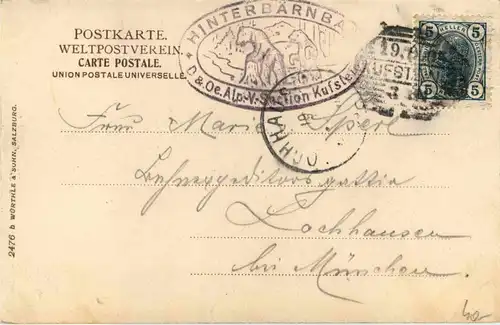 POSTKARTE.
WELTPOSTVEREIN.
CARTE POSTALE.
UNION POSTALE UNIVERSELLE.
* HINTERBÄRNBA
D. & Oe. Alp.-V. Section Kufst
5 HELLER 5
5 5
19.
UFST
OCHHA
Frau Marie
Lochhausen
bei München.
2476 b WÜRTHLE & SOHN, SALZBURG.